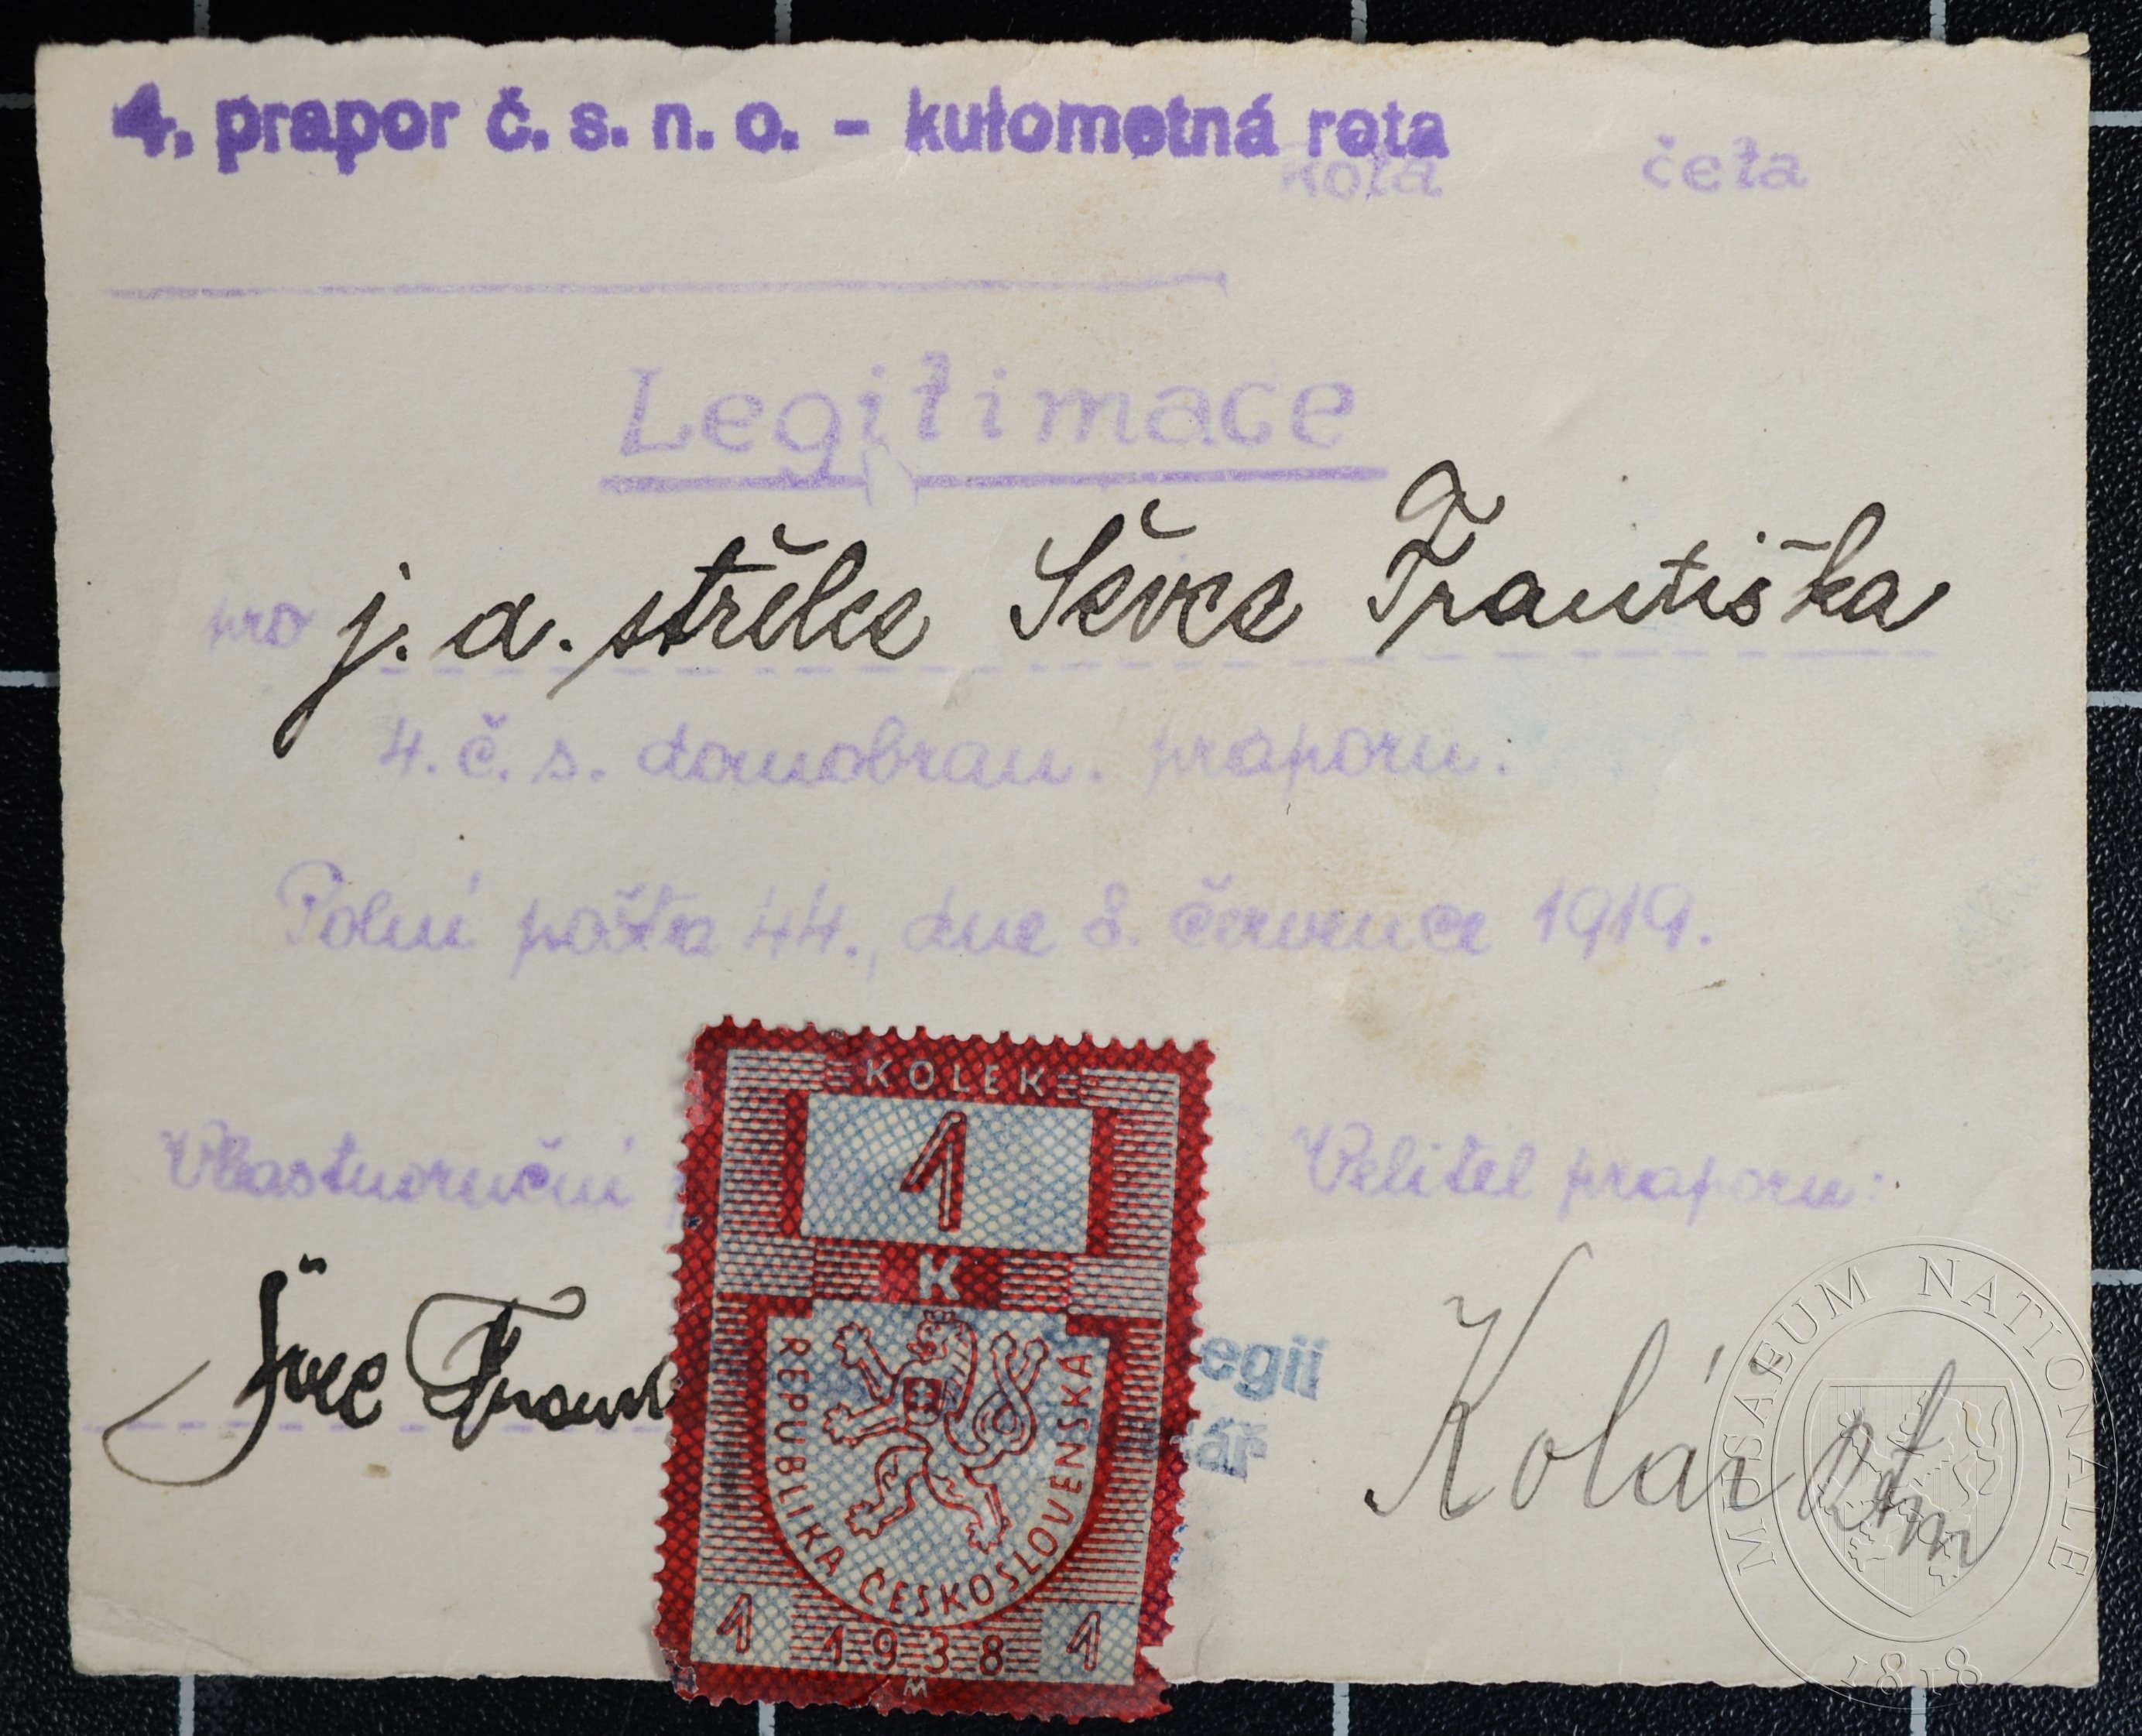 4. prapor č. s. n. o. - kulometná rota
Rota četa
Legitimace
pro j. a. střelce Ševce Františka
4. č. s. domobran. praporu.
Polní pošta 44., dne 8. července 1919.
Vlastnoruční
Velitel praporu:
KOLEK
1
K
REPUBLIKA ČESKOSLOVENSKÁ
1 1938 1
M
egií
ář
Kolář
MUSAEUM NATIONALE
1818